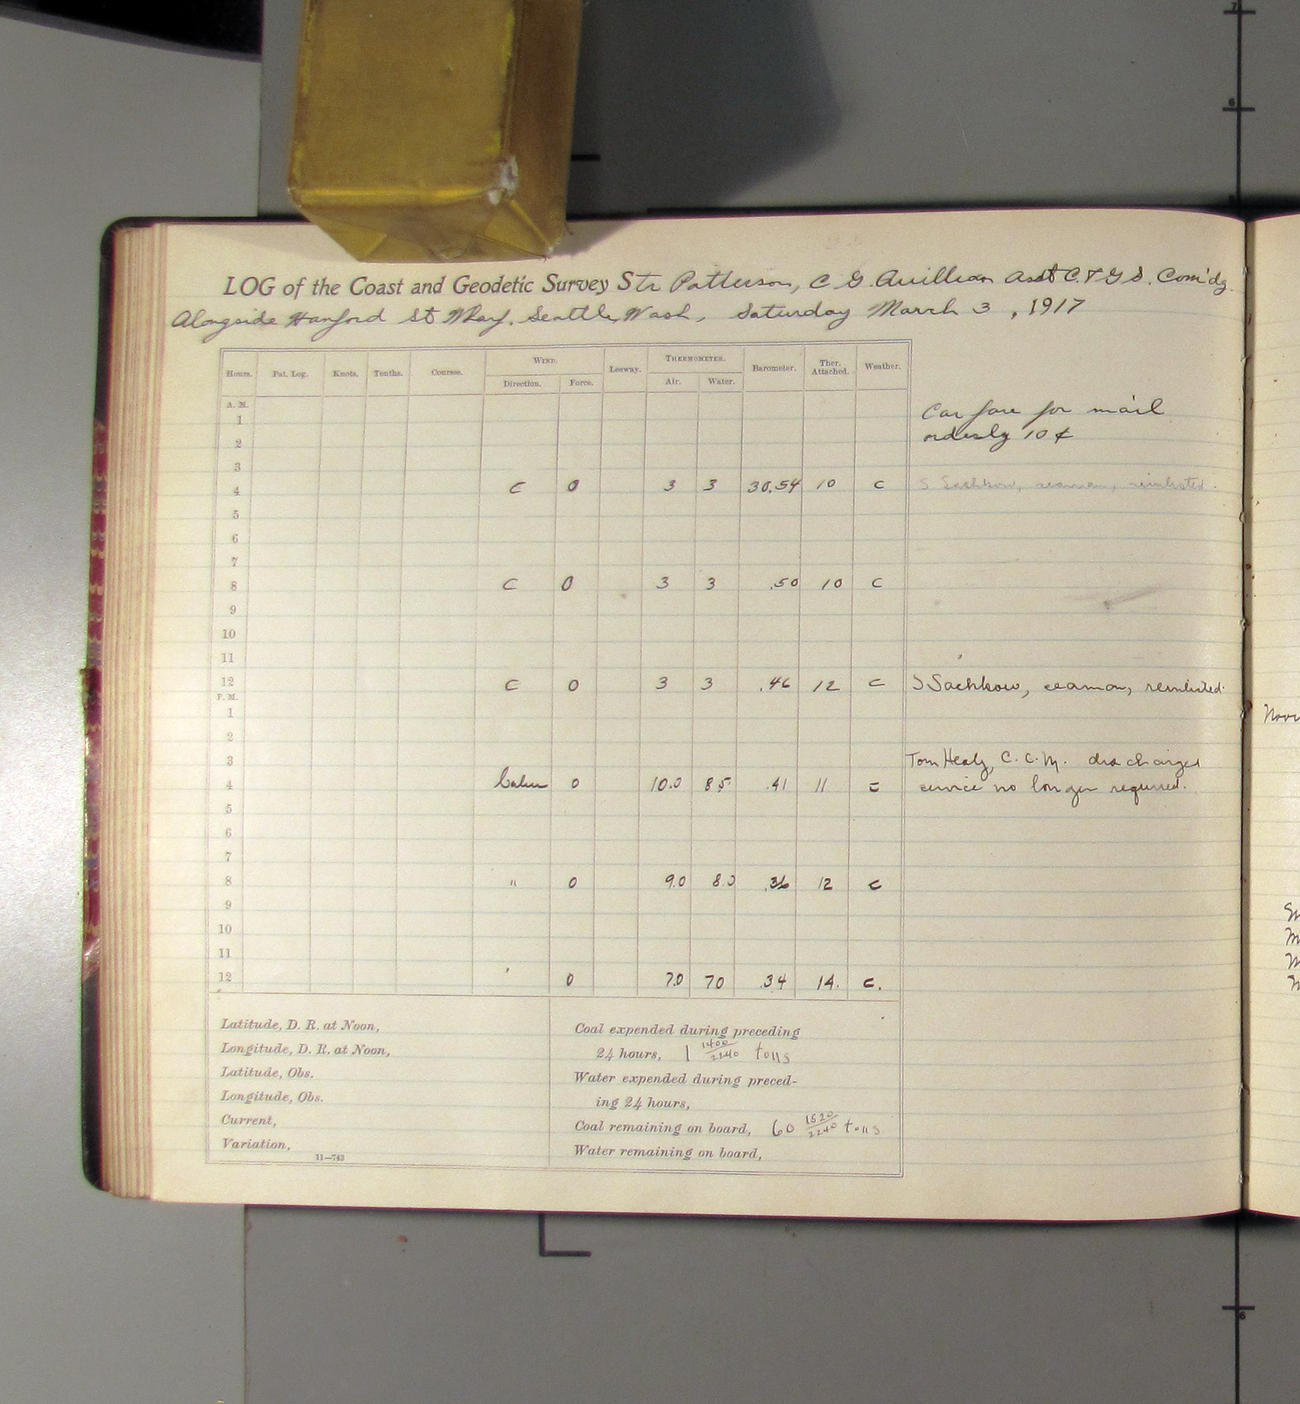 LOG of the Coast and Geodetic Survey Str Patterson, C. G. Quillian Asst C. & G. S. Com'dg.
Alongside Hanford St Wharf, Seattle, Wash, Saturday March 3, 1917
Hours. Pat. Log. Knots. Tenths. Course. WIND. Leeway. THERMOMETER. Barometer. Ther. Attached. Weather.
Direction. Force. Air. Water.
A. M.
1 Car fare for mail
2 orderly 10 ¢
3
4 C 0 3 3 30.54 10 C S Sachkow, seaman, reinlisted.
5
6
7
8 C 0 3 3 .50 10 C
9
10
11
12 C 0 3 3 .46 12 C S Sachkow, seaman, reinlisted.
P. M.
1
2
3 Tom Healy, C. C. M. discharged
4 Calm 0 10.0 8.5 .41 11 C service no longer required.
5
6
7
8 " 0 9.0 8.0 .36 12 C
9
10
11
12 ' 0 7.0 70 .34 14. C.
Latitude, D. R. at Noon,
Longitude, D. R. at Noon,
Latitude, Obs.
Longitude, Obs.
Current,
Variation,
11—743
Coal expended during preceding
24 hours, 1 1400/2240 tons
Water expended during preced-
ing 24 hours,
Coal remaining on board, 60 1520/2240 tons
Water remaining on board,
7
6
6